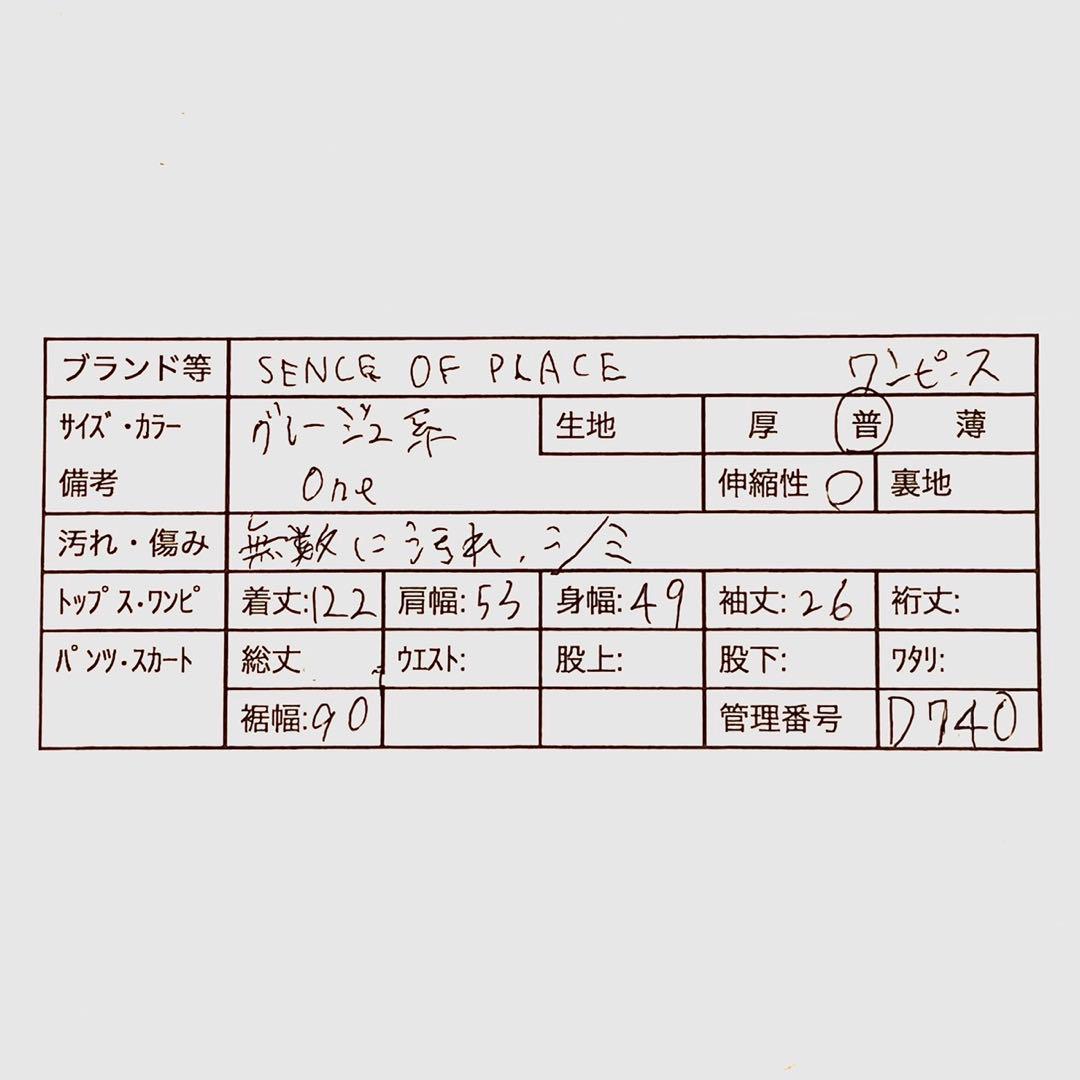 ブランド等 SENCE OF PLACE ワンピース
サイズ・カラー グレージュ系 生地 厚 普 薄
備考 One 伸縮性 ○ 裏地
汚れ・傷み 無数に汚れ、シミ
トップス・ワンピ 着丈:122 肩幅:53 身幅:49 袖丈:26 裄丈:
パンツ・スカート 総丈 ウエスト: 股上: 股下: ワタリ:
裾幅:90 管理番号 D740